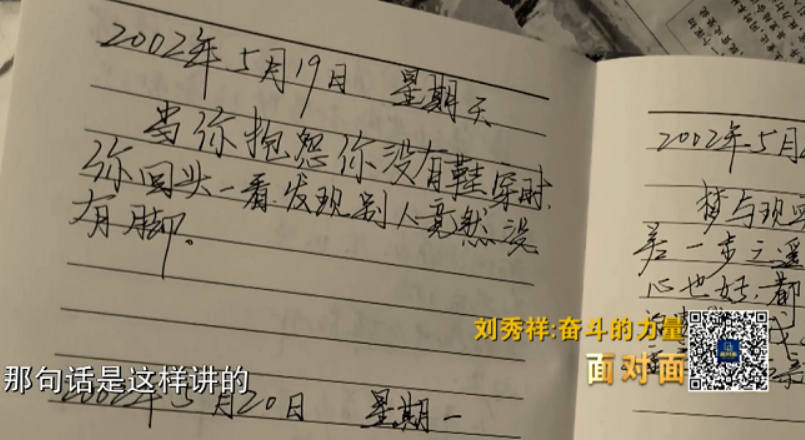 2002年5月19日 星期天
当你抱怨你没有鞋穿时,
你回头一看,发现别人竟然没
有脚。
2002年5月20日 星期一
2002年5月2
梦与现
差一步之遥
心也好,都
刘秀祥:奋斗的力量
面对面
那句话是这样讲的